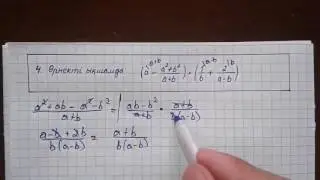 4. Өрнекті ықшамда (a^{a+b} - \frac{a²+b²}{a+b}) · (\frac{1}{b}^{a-b} + \frac{2}{a-b}^{b})
\frac{a²+ab-a²-b²}{a+b} = \frac{ab-b²}{a+b} · \frac{a+b}{b(a-b)}
\frac{a-b+2b}{b(a-b)} = \frac{a+b}{b(a-b)}